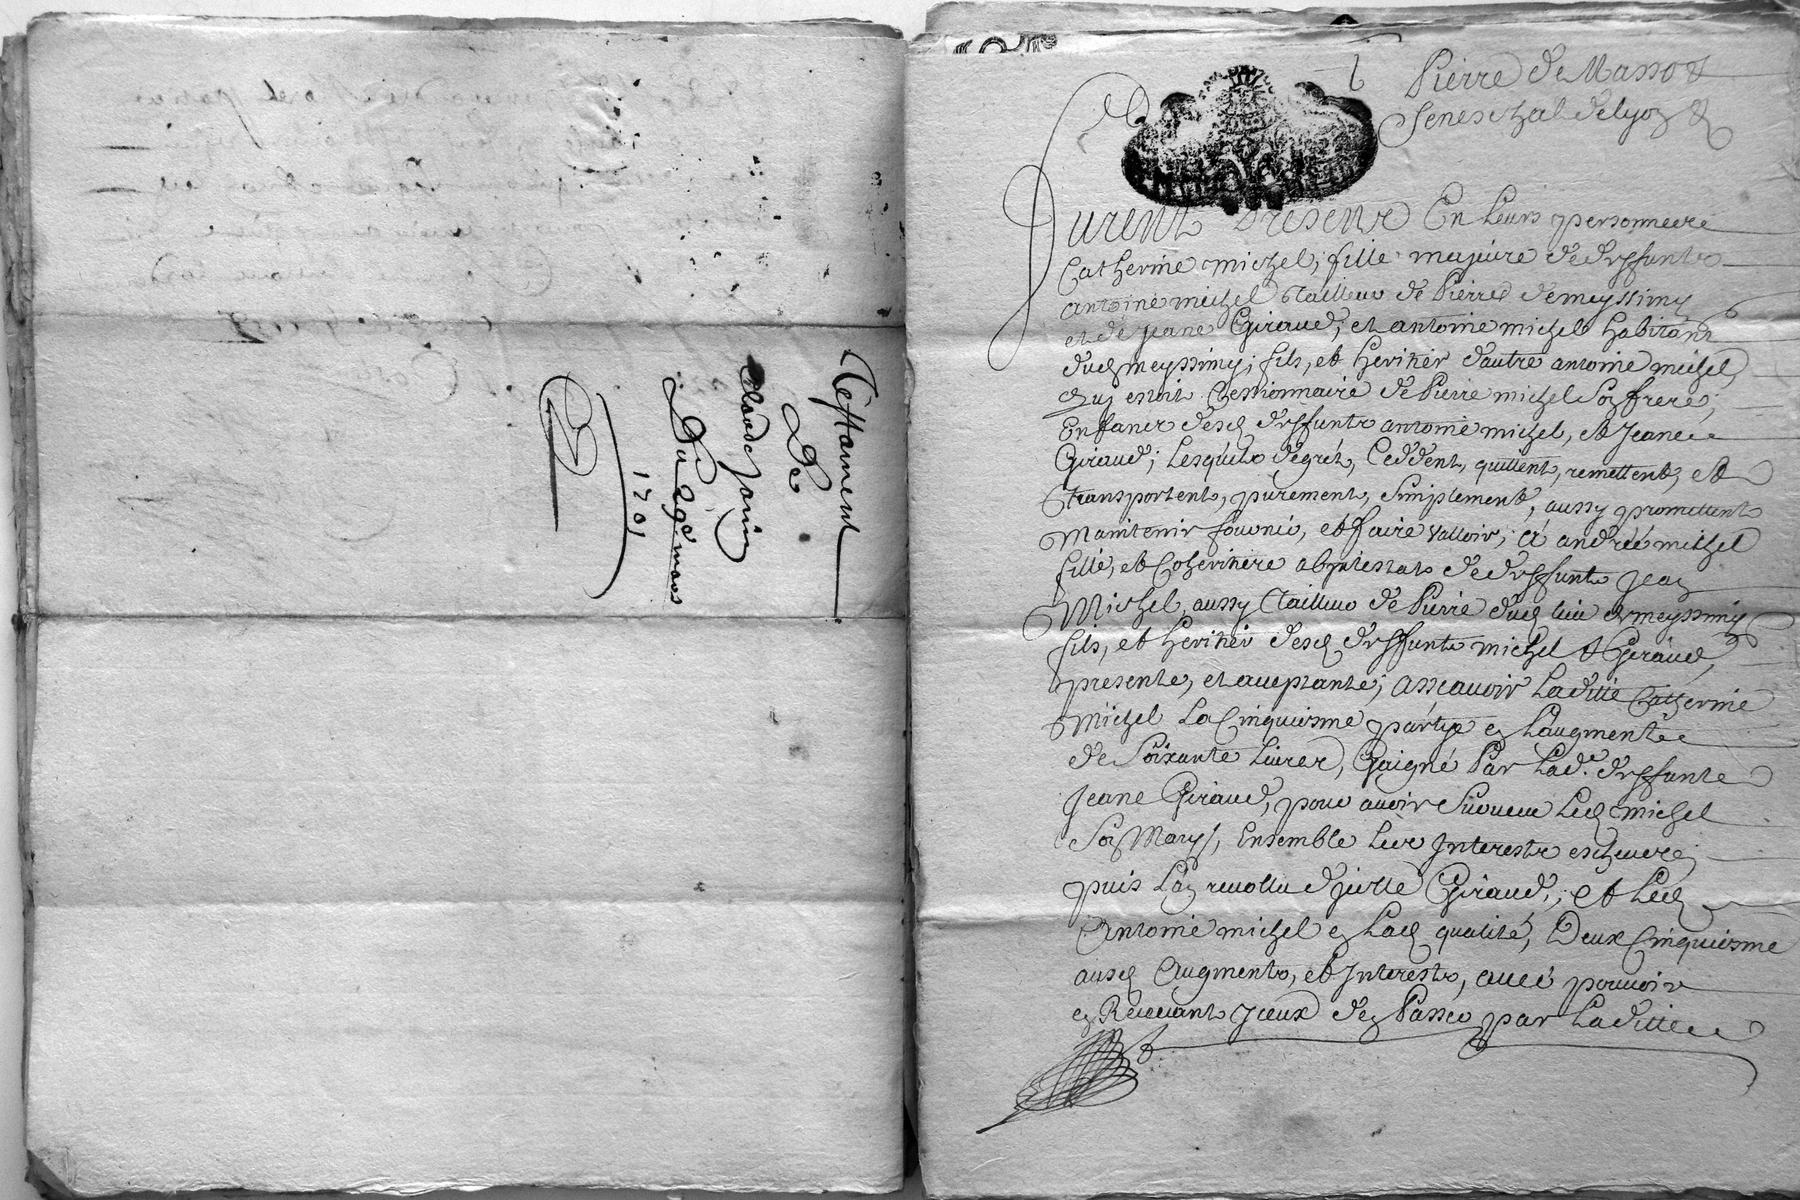 Testament
De
Claude Jonin
Du 29e mars
1701
Pierre de Masso &
Seneschal de lyon &
Furent Presens En Leurs personnees
Catherine michel, fille majeure de deffunts
antoine michel Tailleur de Pierres de meyssimy
et de Jeane Giraud, et antoine michel habitant
dud meyssimy, fils, et heritier d'autre antoine michel,
quj estoit Cessionnaire de Pierre michel Son frere,
Enfans desd deffunts antoine michel, et Jeane
Giraud; Lesquels de gré, Ceddent, quittent, remettent, et
Transportent, purement, Simplement, aussy promettent
Maintenir fournir, et faire Valloir, à andrée michel
fille, et Coheritiere abintestats de deffunt Jean
Michel, aussy Tailleur de Pierre dud lieu de meyssimy
fils, et heritier desd deffunts michel & Giraud,
presente, et acceptante; assavoir Laditte Catherine
Michel La Cinquiesme partye en L'augment
de Soixante Livres, Gaigné Par Lad.e deffunte
Jeane Giraud, pour avoir Survecu Led michel
Son Mary, Ensemble Les Interests escheues
puis Lan revollu d'jcelle Giraud; et Led
Antoine michel en Lad qualité, Deux Cinquiesme
ausd Augments, et Interests, avec pouvoir
en Recevant jceux d'en Passer par Laditte